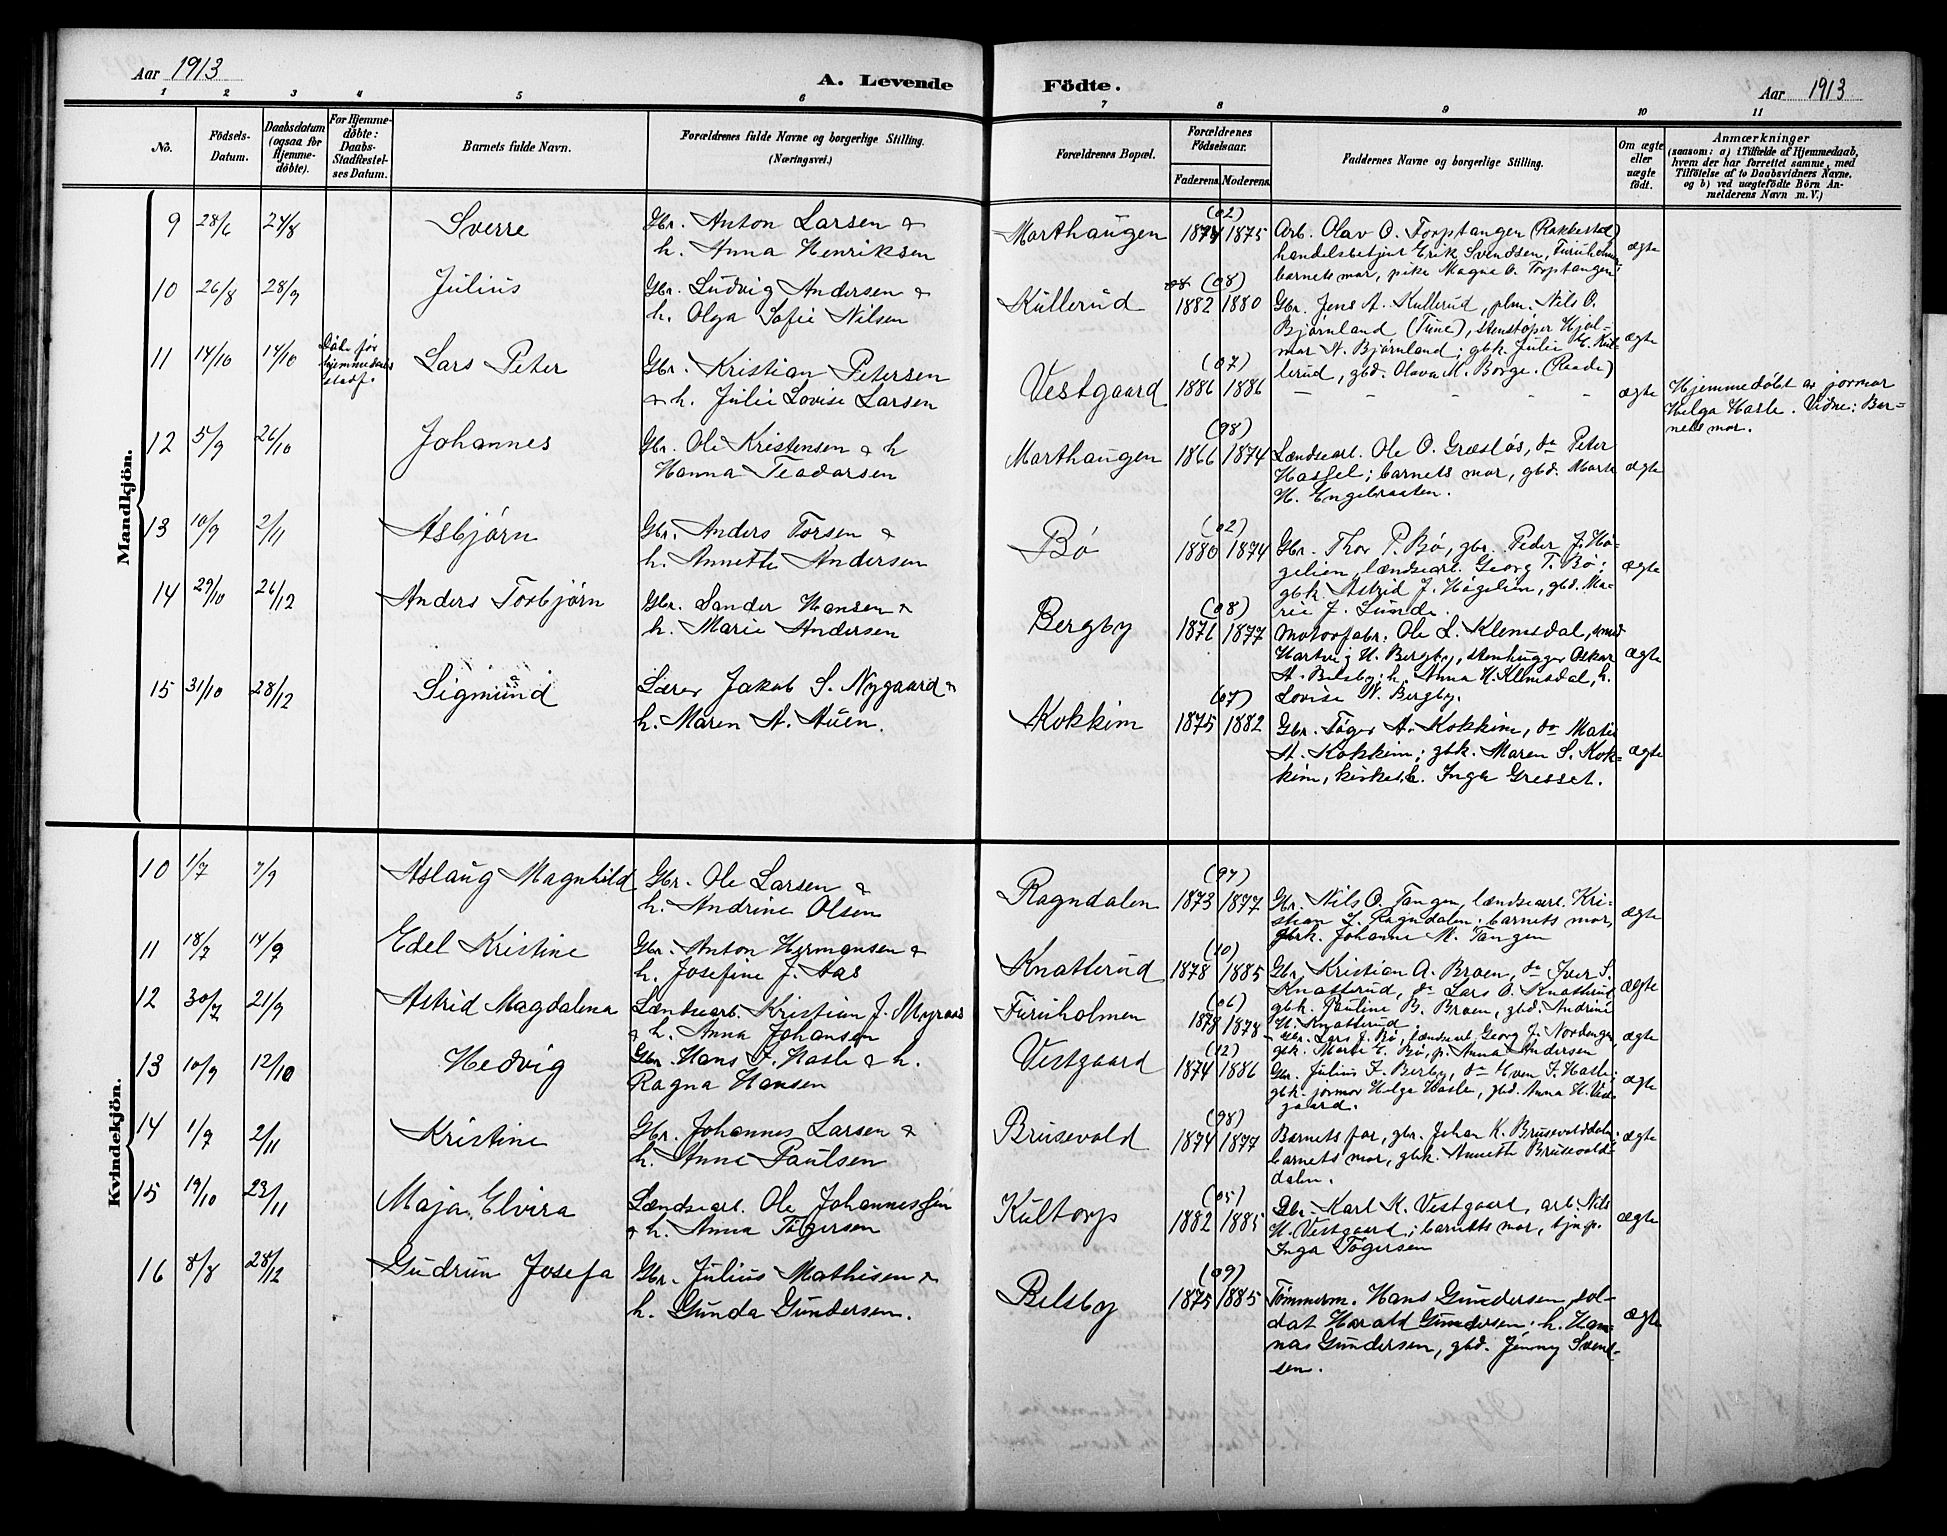 Aar 1913
A. Levende Födte.
Aar 1913
1 2 3 4 5 6 7 8 9 10 11
No.
Födsels-Datum.
Daabsdatum (ogsaa for Hjemme-døbte).
For Hjemme-døbte: Daabs-Stadfæstel-ses Datum.
Barnets fulde Navn.
Forældrenes fulde Navne og borgerlige Stilling.
(Næringsvei.)
Forældrenes Bopæl.
Forældrenes Födselsaar.
Faderens. Moderens.
Faddernes Navne og borgerlige Stilling.
Om ægte eller uægte födt.
Anmærkninger
(saasom: a) i Tilfælde af Hjemmedaab,
hvem der har forrettet samme, med
Tilföielse af to Daabsvidners Navne,
og b) ved uægtefödte Börn An-
melderens Navn m. V.)
Mandkjön.
9 28/6 24/8 Sverre Gbr. Anton Larsen &
h. Anna Henriksen
Morthaugen (02) 1874 1875
Arb. Olav O. Torptangen (Rakkestad)
handelsbetjent Erik Svendsen, Furuholmen;
barnets mor, pike Magna O. Torptangen
ægte
10 26/8 28/9 Julius Gbr. Ludvig Andersen &
h. Olga Sofie Nilsen
Kullerud 08 (08) 1882 1880
Gbr. Jens A. Kullerud, plm. Nils O.
Bjørnland (Tune), stenstøper Hjal-
mar A. Bjørnland; gbk. Julie E. Kul-
lerud, gbd. Olava M. Borge. (Raade)
ægte
11 14/10 14/10 Døde før
hjemmedaabs
stadf.
Lars Peter Gbr. Kristian Petersen
& h. Julie Lovise Larsen
Vestgaard (07) 1886 1886 – – – – –
ægte
Hjemmedøbt av jormor
Helga Hasle. Vidne: Bar-
nets mor.
12 5/9 26/10 Johannes Gbr. Ole Kristensen & h
Hanna Teodorsen
Morthaugen (98) 1866 1874
Lændsarb. Ole O. Græsløs, do Peter
Hassel; barnets mor, gbd. Marte
H. Engebraaten.
ægte
13 10/9 2/11 Asbjørn Gbr. Anders Torsen &
h. Annette Andersen
Bø (02) 1880 1874
Gbr. Thor P. Bø, gbr. Peder J. Hø-
gelien, lændsearb. Georg T. Bø;
gbk. Astrid J. Høgelien, gbd. Ma-
rie J. Lunde.
ægte
14 29/10 26/12 Anders Torbjørn Gbr. Sander Hansen &
h. Marie Andersen
Bergby (08) 1871 1877
Motorfabr. Ole L. Klemsdal, smed
Hartvig H. Bergby, stenhugger Oskar
A. Bilsby; h. Anna H. Klemsdal, h.
Lovise N. Bergby.
ægte
15 31/10 28/12 Sigmund Lærer Jakob S. Nygaard &
h. Maren A. Auen.
Kokkim (07) 1875 1882
Gbr. Tøger A. Kokkim, do Matis
A. Kokkim; gbk. Maren S. Kok-
kim, kirkes.h. Inga Gresset.
ægte
Kvindekjön.
10 1/7 7/9 Aslaug Magnhild Gbr. Ole Larsen &
h. Andrine Olsen
Ragndalen (97) 1873 1877
Gbr. Nils O. Tangen, lændsearb. Kri-
stian L. Ragndalen; barnets mor,
gbk. Johanne M. Tangen
ægte
11 18/7 14/9 Edel Kristine Gbr. Anton Hermansen &
h. Josefine J. Aas
Knatterud (10) 1878 1885
Gbr. Kristian A. Braen, do Iver S.
Knatterud, do Lars O. Knatterud;
gbk. Pauline B. Braen, gbd. Andrine
H. Knatterud
ægte
12 30/7 21/9 Astrid Magdalena Lændsearb. Kristian J. Myraas
& h. Anna Johansen
Furuholmen (06) 1878 1878
Gbr. Lars J. Bø, lændsearb. Georg J. Nordenge,
gbk. Marte E. Bø, p. Anna Andersen
ægte
13 10/9 12/10 Hedvig Gbr. Hans F. Hasle & h.
Ragna Hansen
Vestgaard (12) 1874 1886
Gbr. Julius F. Berby, do Even F. Hasle;
gbk. jormor Helga Hasle, gbd. Anna H. Vest-
gaard.
ægte
14 1/9 2/11 Kristine Gbr. Johannes Larsen &
h. Anne Paulsen
Brusevold (98) 1874 1877
Barnets far, gbr. Johan K. Brusevolddalen;
barnets mor, gbk. Annette Brusevold-
dalen.
ægte
15 19/10 23/11 Maja Elvira Lændsearb. Ole Johannessen
& h. Anna Tøgersen
Kultorp (05) 1882 1885
Gbr. Karl K. Vestgaard, arb. Nils
H. Vestgaard; barnets mor, tjp.
Inga Tøgersen
ægte
16 8/8 28/12 Gudrun Josefa Gbr. Julius Mathisen &
h. Gunda Gundersen.
Belsby (09) 1875 1885
Tømmerm. Hans Gundersen, sol-
dat Harald Gundersen; h. Han-
nas Gundersen, gbd. Jenny Svend-
sen.
ægte